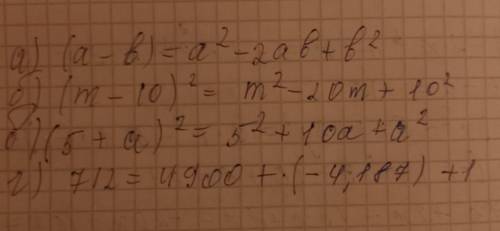 а) (а - в) = а² - 2ав + в²
б) (m - 10)² = m² - 20m + 10²
в) (5 + а)² = 5² + 10а + а²
г) 712 = 4900 + · (-4,187) + 1